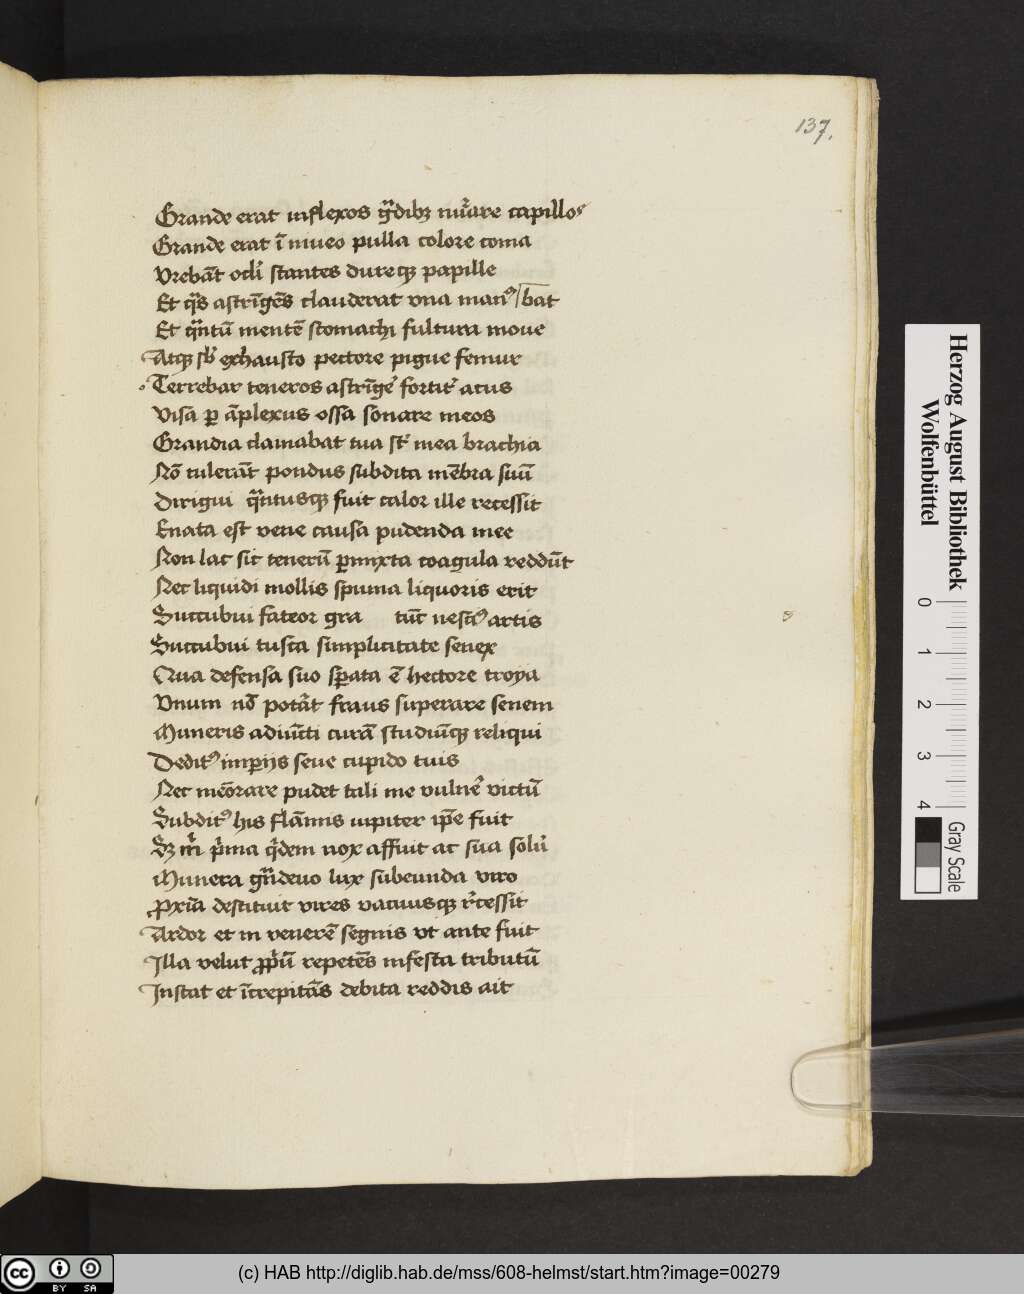 137.
Grande erat inflexos gᷓdibꝫ nuᷓare capillos
Grande erat ī niueo pulla colore coma
Vrebāt ocłi stantes dureqꝫ papille
Et qᷓs astrīgēs clauderat vna manꝰ bat
Et qᷓntū mentē stomachi fultura moue
Atqꝫ sb̛ exhausto pectore pigue femur
Terrebar teneros astrīge᷒ fortit᷒ artus
Visa ꝑ āplexus ossa sonare meos
Grandia clamabat tua st᷒ mea brachia
Nō tulerāt pondus subdita mēbra suū
Dirigui qᷓntusqꝫ fuit calor ille recessit
Enata est vene causa pudenda mee
Non lac sic tenerū ꝑmixta coagula reddūt
Nec liquidi mollis spuma liquoris erit
Succubui fateor gra tūc nesci᷒ artis
Succubui tusca simplicitate senex
Qua defensa suo sꝑata ē hectore troya
Vnum nō potāt fraus superare senem
Muneris adiūcti curā studiūqꝫ reliqui
Deditꝰ imꝑijs seue cupido tuis
Nec meōrare pudet tali me vulne᷒ victū
Subditꝰ his flāmis iupiter ip̄e fuit
Sꝫ m̊ p̊ma q̊dem nox affuit ac sūa solu᷒
Munera gᷓndeuo lux subeunda viro
ꝓxīa destituit vires vacuusqꝫ r᷒cessit
Ardor et in venerē segnis vt ante fuit
Illa velut ꝓp̊ū repetēs infesta tributū
Instat et īcrepitās debita reddis ait
Herzog August Bibliothek
Wolfenbüttel
0 1 2 3 4
Gray Scale
cc BY SA
(c) HAB http://diglib.hab.de/mss/608-helmst/start.htm?image=00279